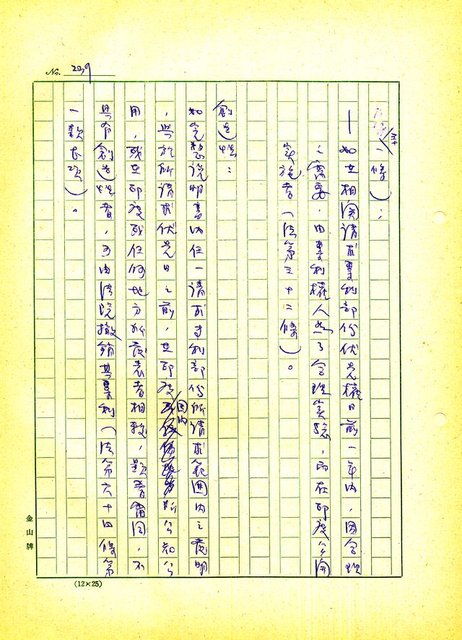 No.
條);
—如在相關請求專利部份优先權日前一年內,因合理
之需要,由專利權人為了合理實驗,而在印度公開
實施者(法第三十二條)。
創造性:
如完整說明書內任一請求專利部份所請求範圍內之發明
,與於所請求优先日之前,在印度國內所公知公
用,或在印度或任何地方所發表者相較,顯屬雷同,不
具有創造性者,可由法院撤銷其專利(法第六十四條第
一款 項)。
金山牌
(12×25)